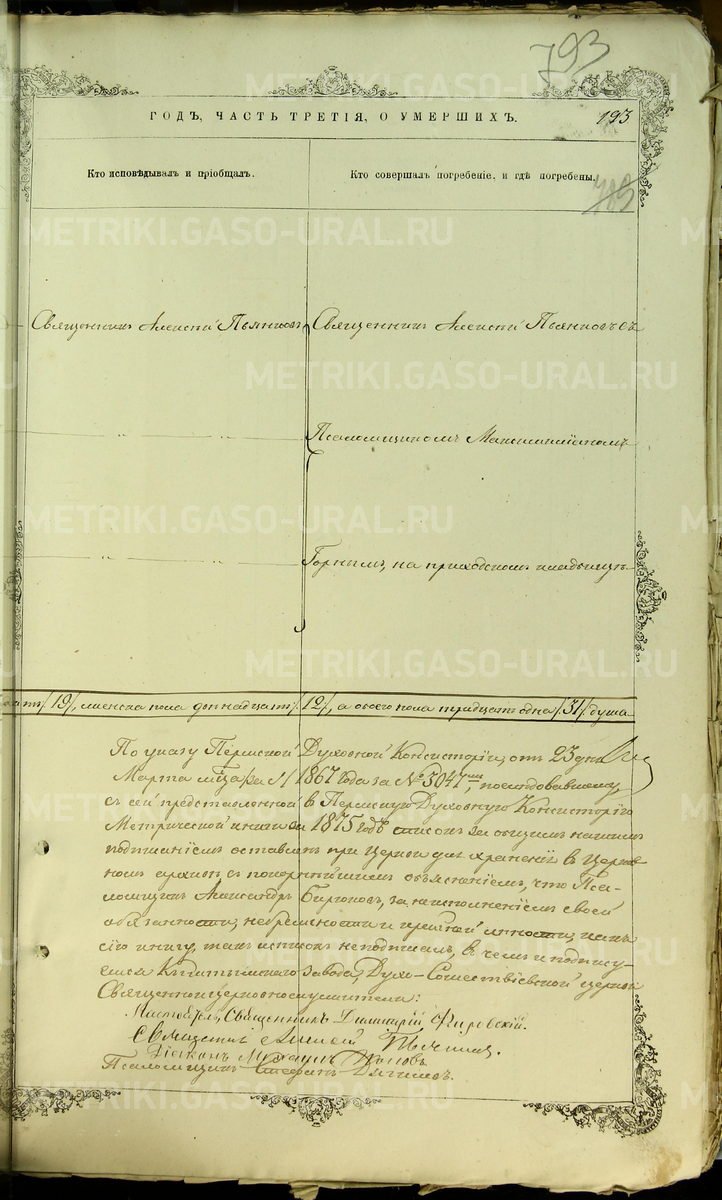 793
ГОДЪ, ЧАСТЬ ТРЕТІЯ, О УМЕРШИХЪ.
193
Кто исповѣдывалъ и пріобщалъ.
Кто совершалъ погребеніе, и гдѣ погребены.
METRIKI.GASO-URAL.RU
Священникъ Алексій Пьянковъ
Священникъ Алексій Пьянковъ съ
Псаломщикомъ
Горнымъ, на приходскомъ кладбищѣ
/19/, женска пола двѣнадцать /12/, а обоего пола тридцать одна /31/ душа
По указу Пермской Духовной Консисторіи, отъ 23 дня
Марта 1867 года за № 3047, послѣдовавшему
съ сей представленной въ Пермскую Духовную Консисторію
Метрической книги за 1875 годъ списокъ за общимъ нашимъ
подписаніемъ оставленъ при церкви для храненія въ Церков-
номъ архивѣ съ объясненіемъ, что Пса-
ломщикъ Александръ за неисполненіемъ своей
обязанности, небрежности и лѣности, какъ
сію книгу, такъ и списокъ не подписалъ, въ чемъ и подпису-
емся завода, Духо-Сошествіевской церкви
Священноцерковнослужители:
Священникъ Димитрій
Священникъ Алексій Пьянковъ
Діаконъ Михаилъ Поповъ
Псаломщикъ Стефанъ